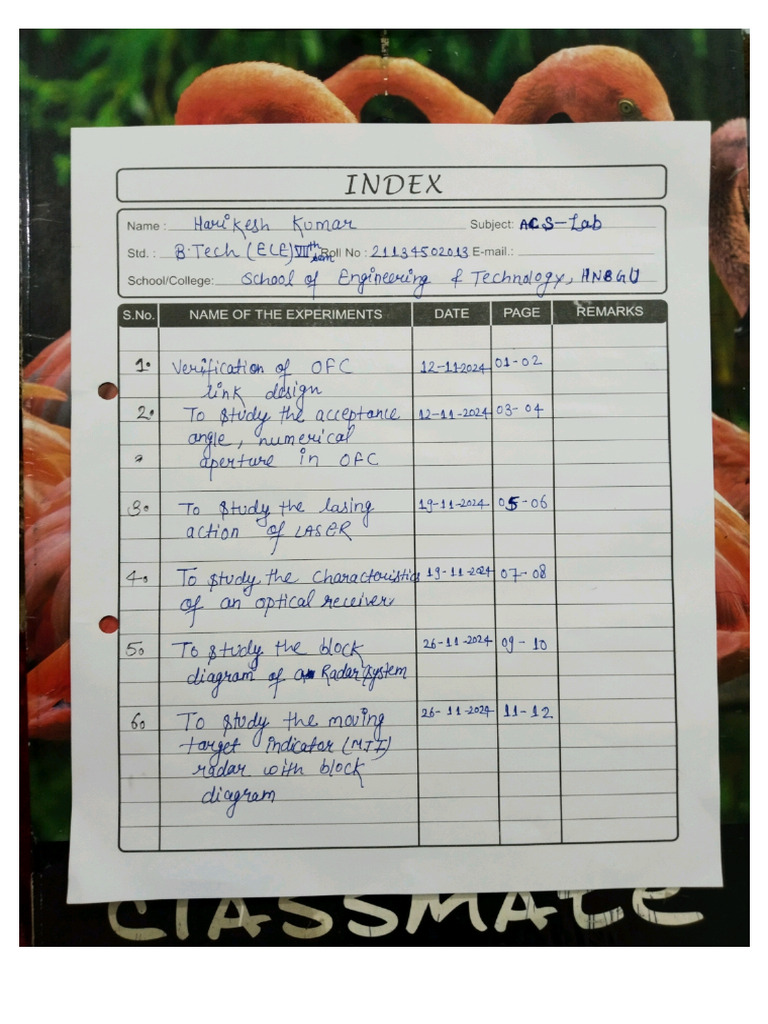 INDEX
Name : Harikesh Kumar Subject: ACS-Lab
Std. : B.Tech (ECE) VIIth sem Roll No : 21134502013 E-mail.:
School/College: School of Engineering & Technology, HNBGU
S.No. NAME OF THE EXPERIMENTS DATE PAGE REMARKS
1. Verification of OFC 12-11-2024 01-02
link design
2. To study the acceptance 12-11-2024 03-04
angle, numerical
aperture in OFC
3. To study the lasing 19-11-2024 05-06
action of LASER
4. To study the characteristics 19-11-2024 07-08
of an optical receiver
5. To study the block 26-11-2024 09-10
diagram of a Radar system
6. To study the moving 26-11-2024 11-12
target indicator (MTI)
radar with block
diagram
CLASSMATE